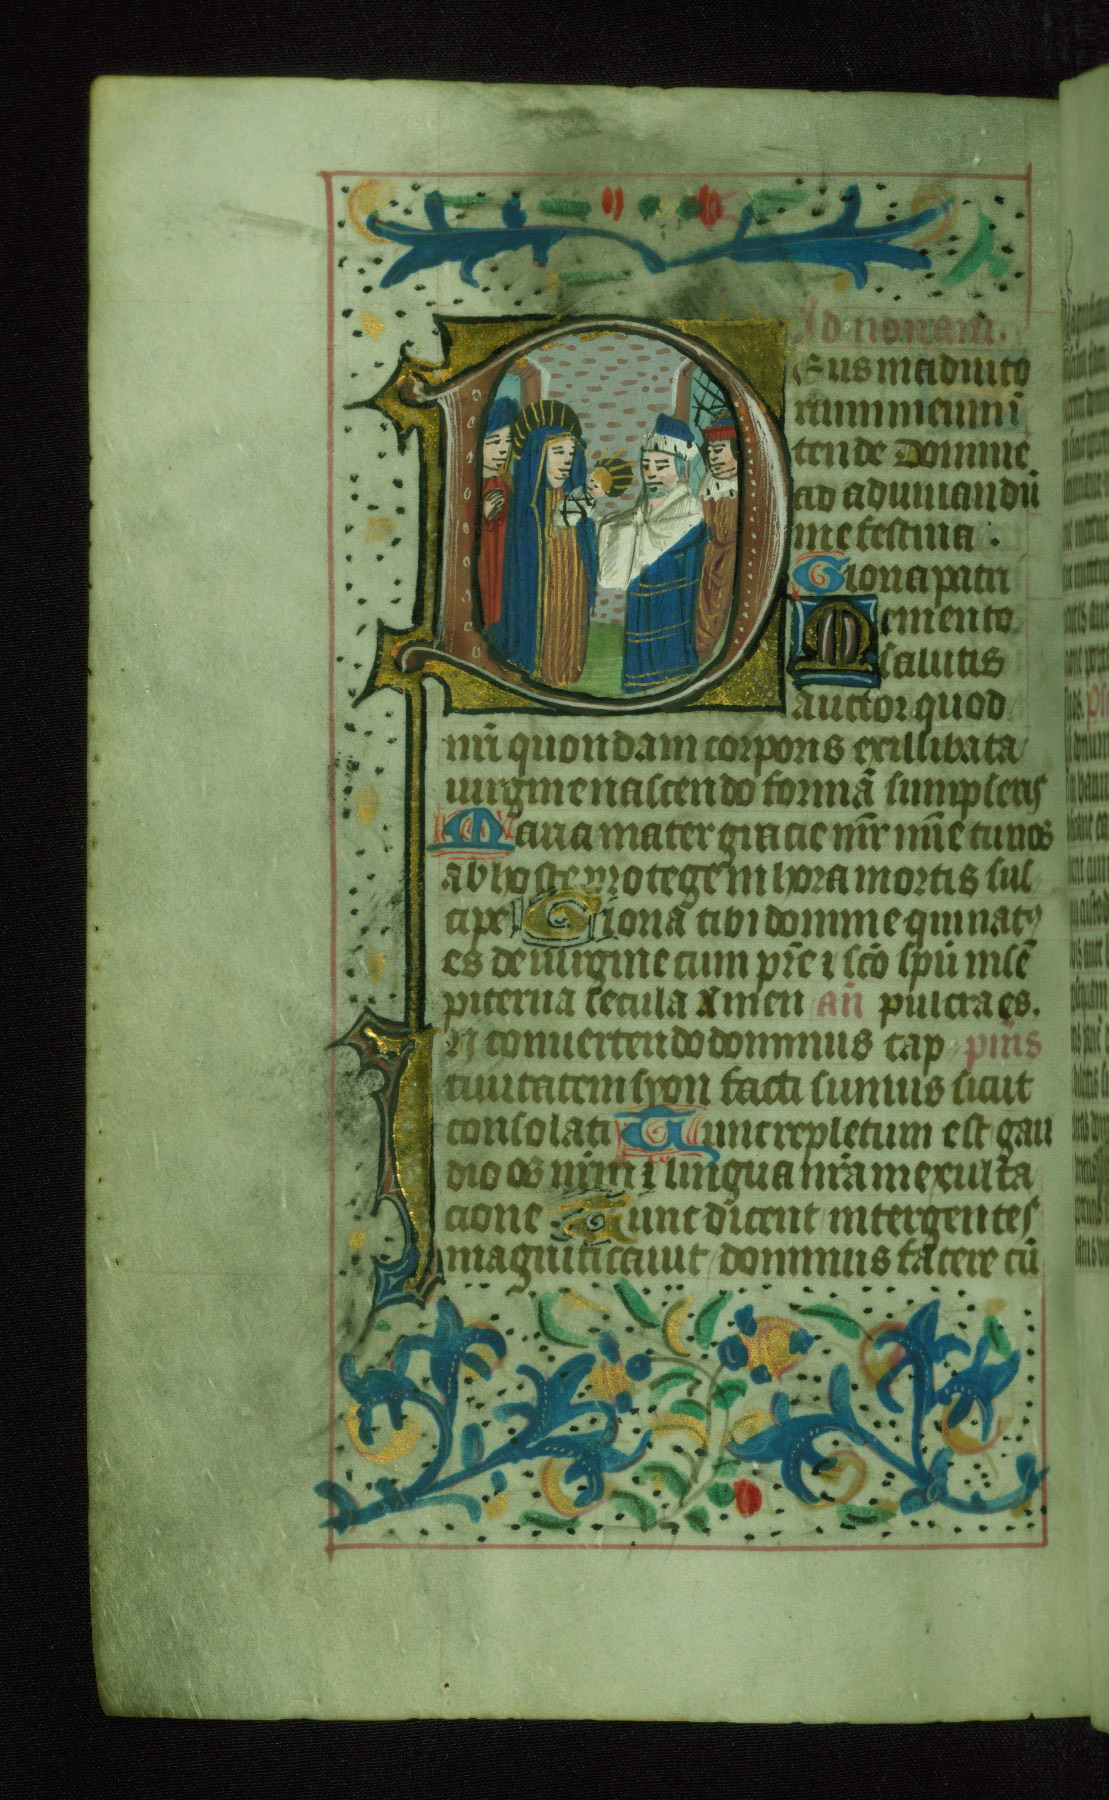 Ad nonam.
Eus in adiuto
rium meum ī
tende Domine
ad adiuuandū
me festina .
Gloria patri
Memento
salutis
auctor quod
nr̄i quondam corporis ex illibata
uirgine nascendo formā sumpseris
Maria mater gracie mr̄ mīe tu nos
ab hoste protege in hora mortis sus
cipe Gloria tibi domine qui natꝰ
es de uirgine cum pr̄e ⁊ sc̄o spū in sē
piterna secula Amen an̄ pulcra es.
In conuertendo dominus cap pm̄s
tiuitatem syon facti sumus sicut
consolati Tunc repletum est gau
dio os nr̄m ⁊ lingua nr̄a in exulta
cione Tunc dicent inter gentes
magnificauit dominus facere cū